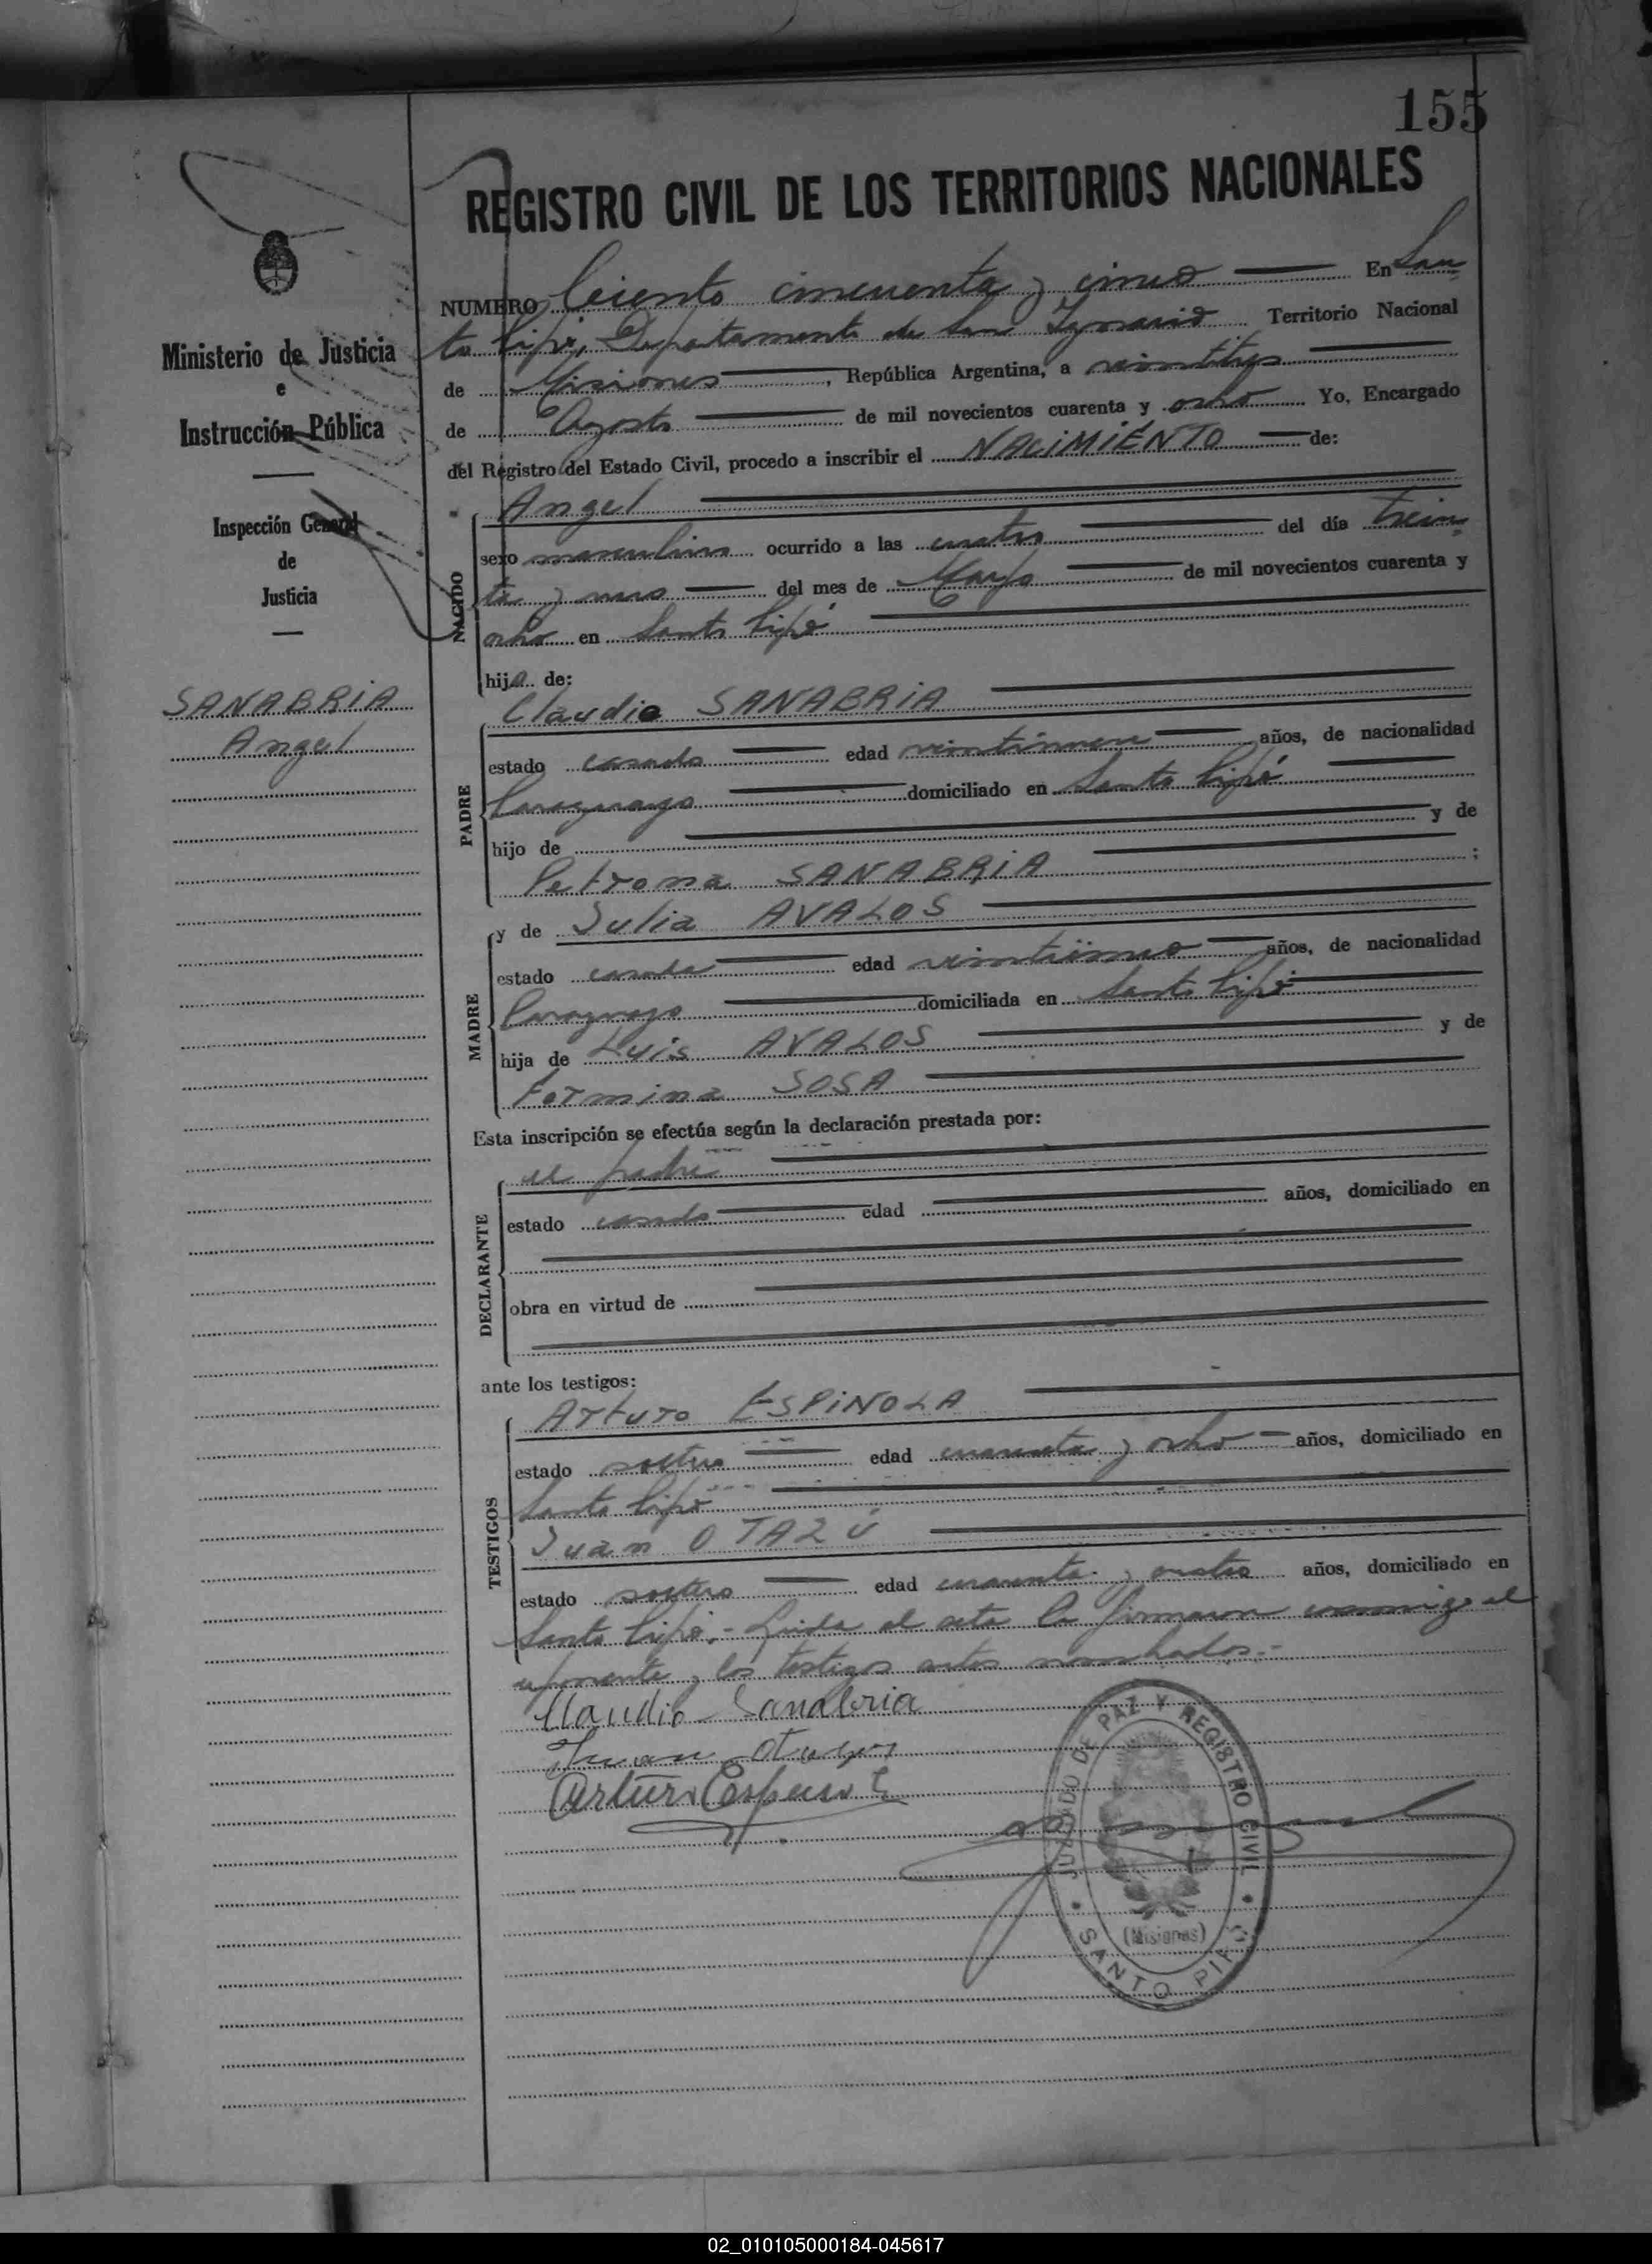 155
REGISTRO CIVIL DE LOS TERRITORIOS NACIONALES
Ministerio de Justicia
e
Instrucción Pública
Inspección General
de
Justicia
SANABRIA
Angel
NUMERO Ciento cincuenta y cinco En San
to Pipó, Departamento de San Ignacio Territorio Nacional
de Misiones, República Argentina, a veintitres
de Agosto de mil novecientos cuarenta y ocho Yo, Encargado
del Registro del Estado Civil, procedo a inscribir el NACIMIENTO de:
NACIDO
Angel
sexo masculino ocurrido a las cuatro del día trein
ta y uno del mes de Mayo de mil novecientos cuarenta y
ocho en Santo Pipó
hijo de:
PADRE
Claudio SANABRIA
estado casado edad veintinueve años, de nacionalidad
Paraguayo domiciliado en Santo Pipó
hijo de y de
Petrona SANABRIA ;
MADRE
y de Julia AVALOS
estado casada edad veinticinco años, de nacionalidad
Paraguayo domiciliada en Santo Pipó
hija de Luis AVALOS y de
Fermina SOSA
Esta inscripción se efectúa según la declaración prestada por:
DECLARANTE
el padre
estado casado edad años, domiciliado en
obra en virtud de
ante los testigos:
TESTIGOS
Arturo ESPINOLA
estado soltero edad cuarenta y ocho años, domiciliado en
Santo Pipó
Juan OTAZÚ
estado soltero edad cuarenta y cuatro años, domiciliado en
Santo Pipó.- Leida el acta la firmaron conmigo el
exponente y los testigos antes nombrados.-
Claudio Sanabria
Juan
Arturo
JUZGADO DE PAZ Y REGISTRO CIVIL
(Misiones)
SANTO PIPÓ
02_010105000184-045617